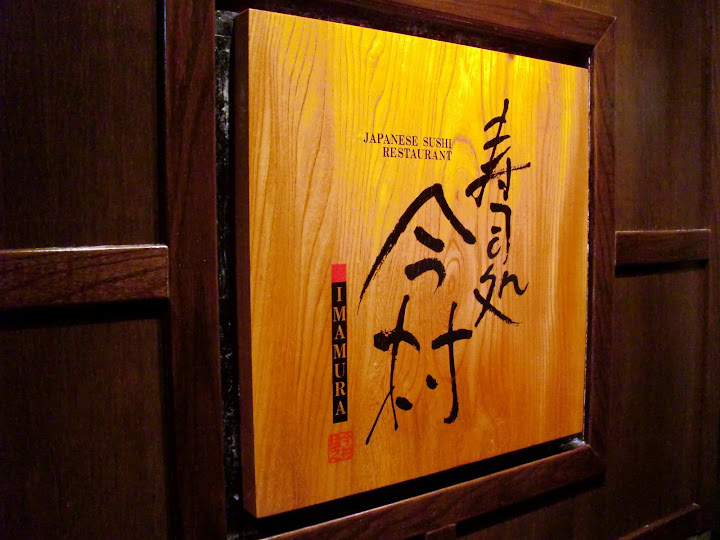 寿司処
今村
JAPANESE SUSHI
RESTAURANT
IMAMURA